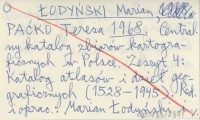 O ŁODYŃSKI Marian
PAĆKO Teresa 1968, Central-
ny katalog zbiorów kartogra-
ficznych w Polsce. Zeszyt 4:
Katalog atlasów i dzieł geo-
graficznych (1528-1945). Red.
i oprac.: Marian Łodyński,